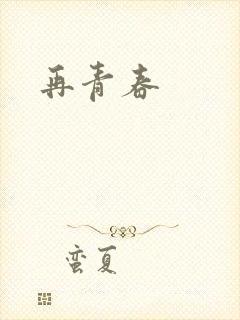 再青春
蛮夏